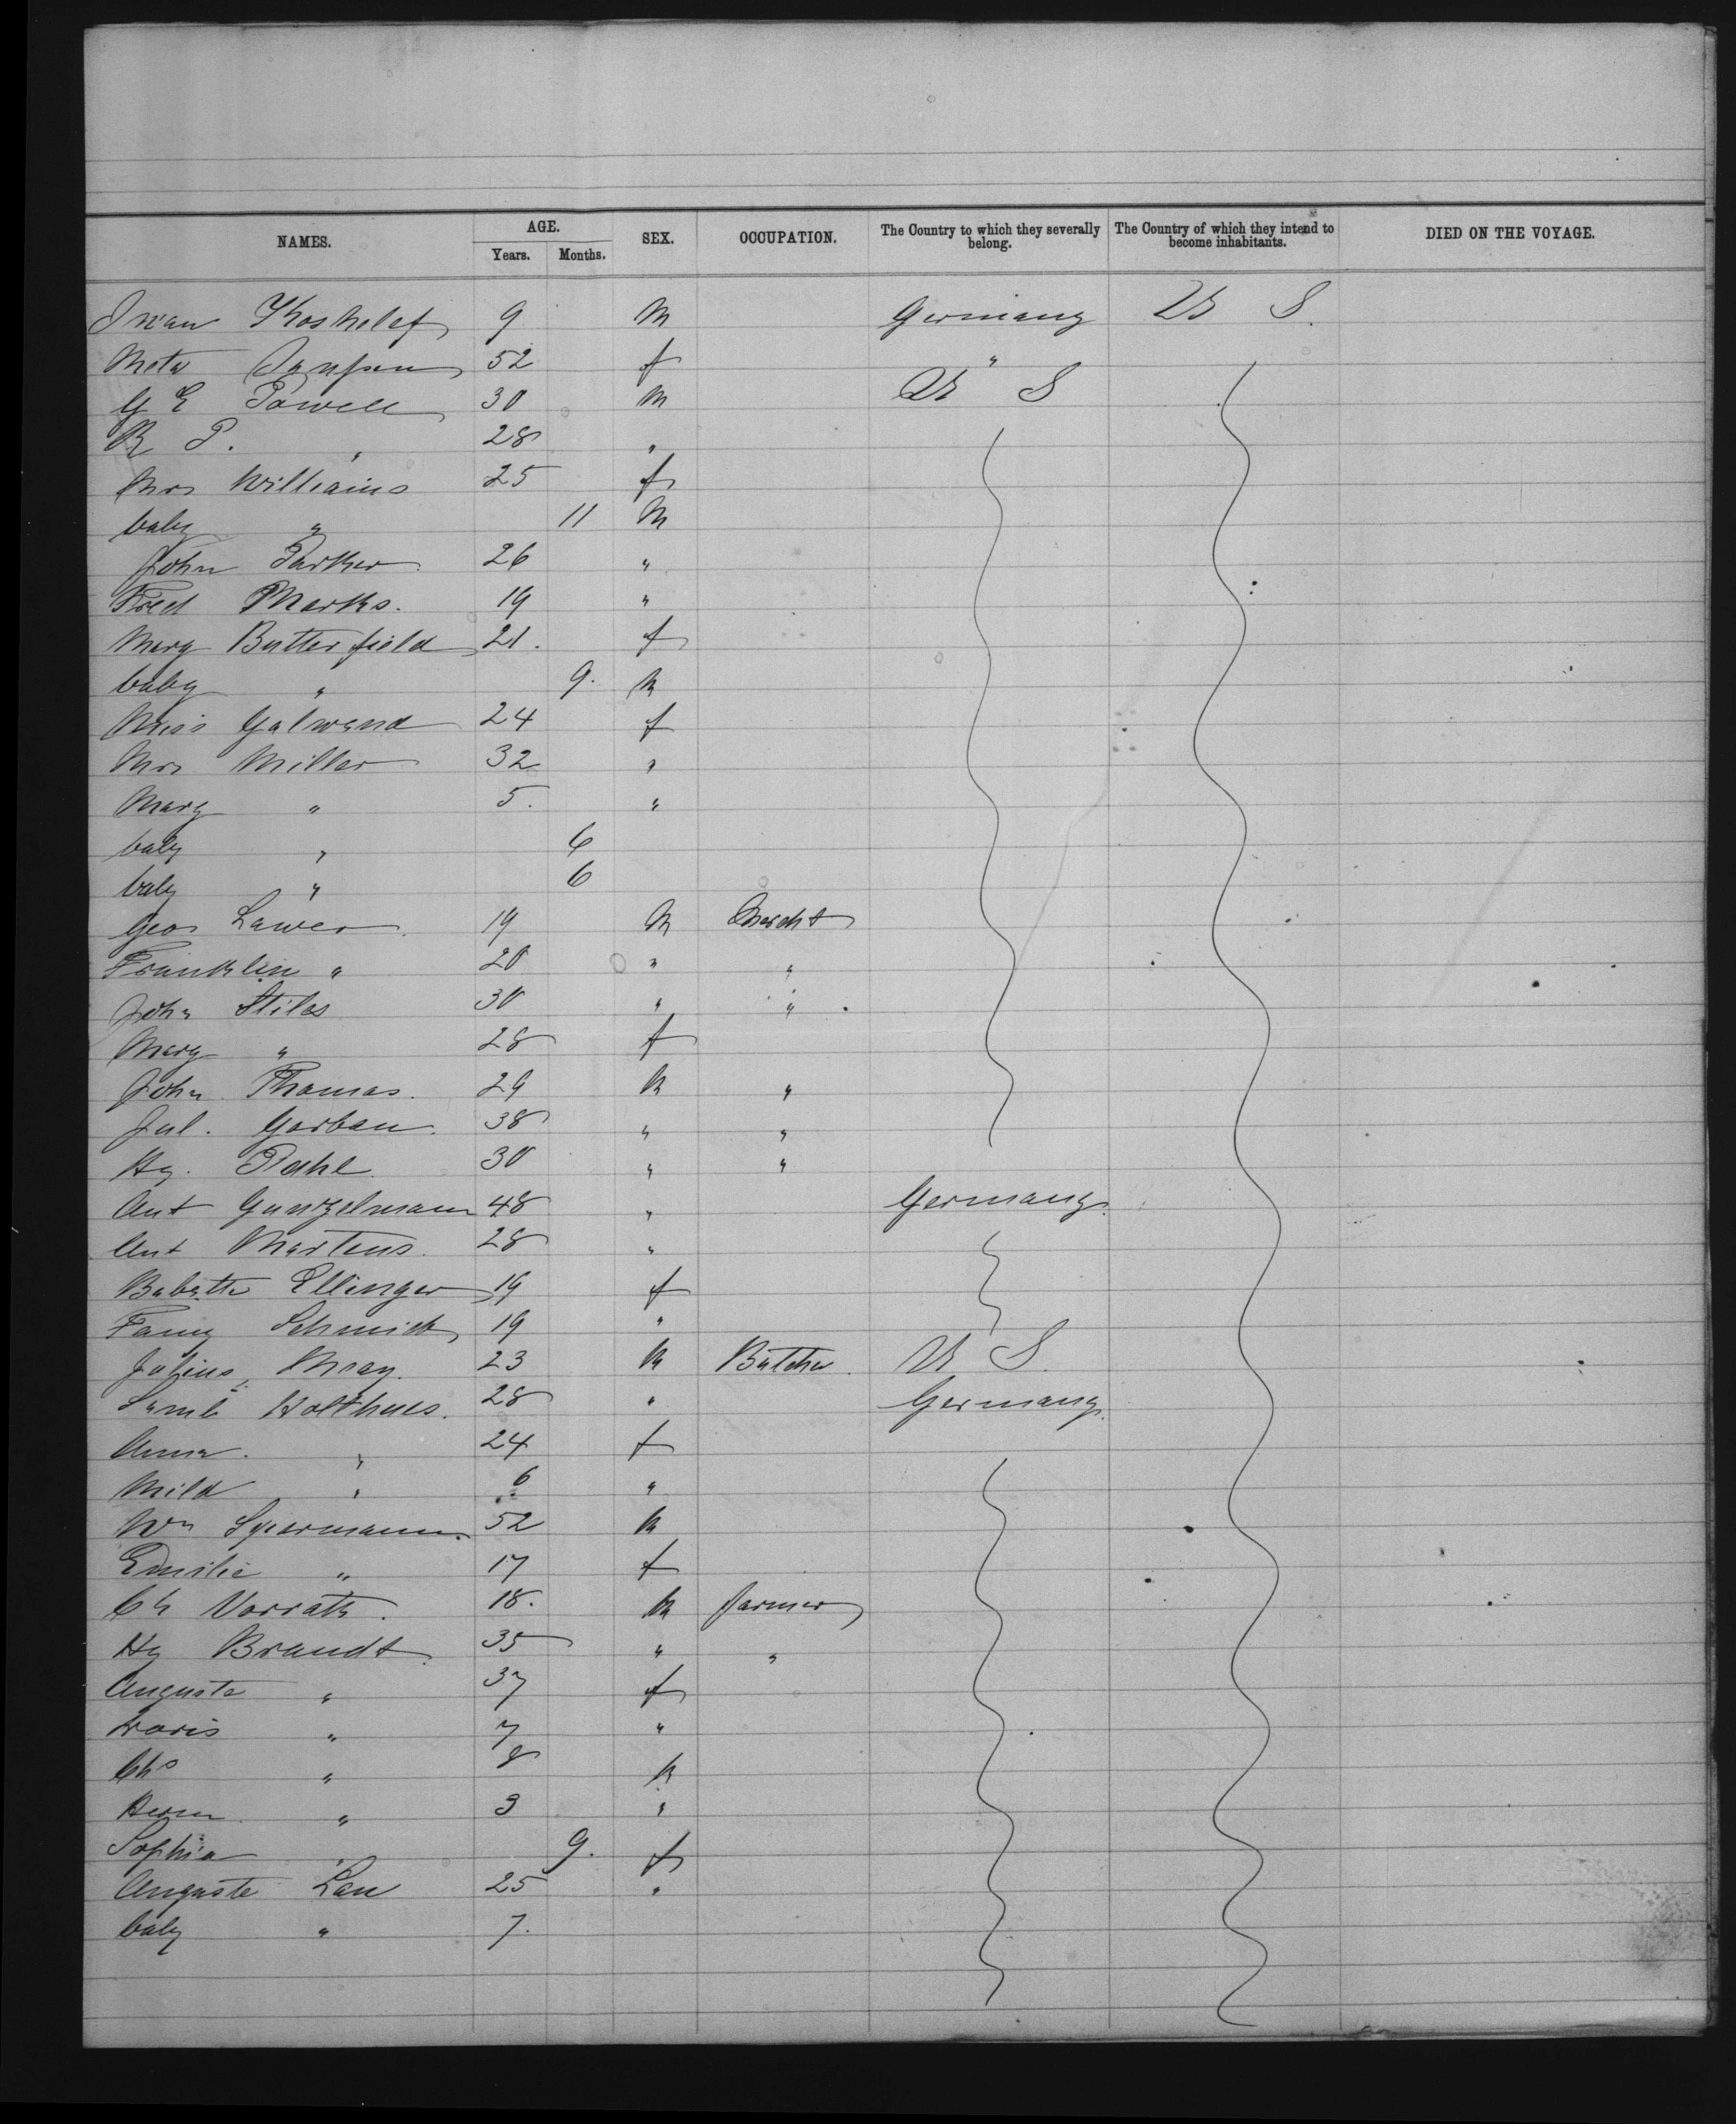 NAMES. AGE. SEX. OCCUPATION. The Country to which they severally belong. The Country of which they intend to become inhabitants. DIED ON THE VOYAGE.
Years. Months.
Iwan Koshelef 9 M Germany U S.
Meta Janssen 52 f "
G E Powell 30 M U S
R P. " 28 "
Mrs Williams 25 f
baby " 11 M
John Parker 26 "
Fred Marks. 19 "
Mary Butterfield 21. f
baby " 9. M
Miss Galwend 24 f
Mrs Miller 32 "
Mary " 5. "
baby " 6
baby " 6
Geo Lawer 19 M Mercht
Franklin " 20 " "
John Stiles 30 " "
Mary " 28 f
John Thomas. 29 M "
Jul. Garban. 38 " "
Hy. Pahl 30 " "
Ant Gunzelmann 48 " Germany.
Ant Martens. 28 "
Babette Ellinger 19 f
Fany Schmidt 19 "
Julius May. 23 M Butcher U S.
Holthues. 28 " Germany.
Anna. " 24 f
Mild " 6 "
Wm Spiermann. 52 M
Emilie " 17 f
Ch Vorrath. 18. M farmer
Hy Brandt. 35 " "
Auguste " 37 f
Doris " 7 "
Chs " 8 M
Herm. " 3 "
Sophia " 9. f
Auguste Lau 25 "
baby " 7.